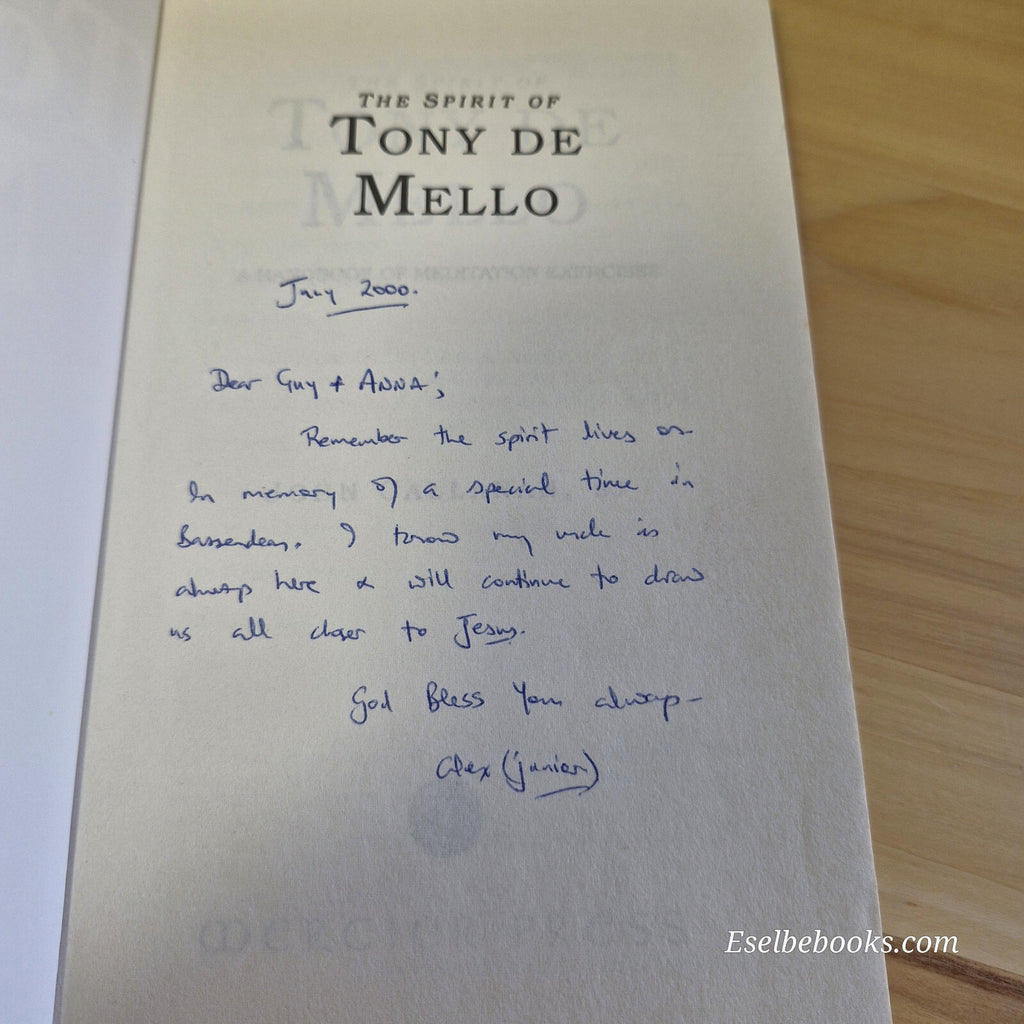 THE SPIRIT OF
TONY DE
MELLO
A HANDBOOK OF MEDITATION EXERCISES
July 2000.
Dear Guy & ANNA;
Remember the spirit lives on
In memory of a special time in
Bassendean. I know my uncle is
always here & will continue to draw
us all closer to Jesus.
God Bless You always-
Alex (junior)
MERCIER PRESS
Eselbebooks.com